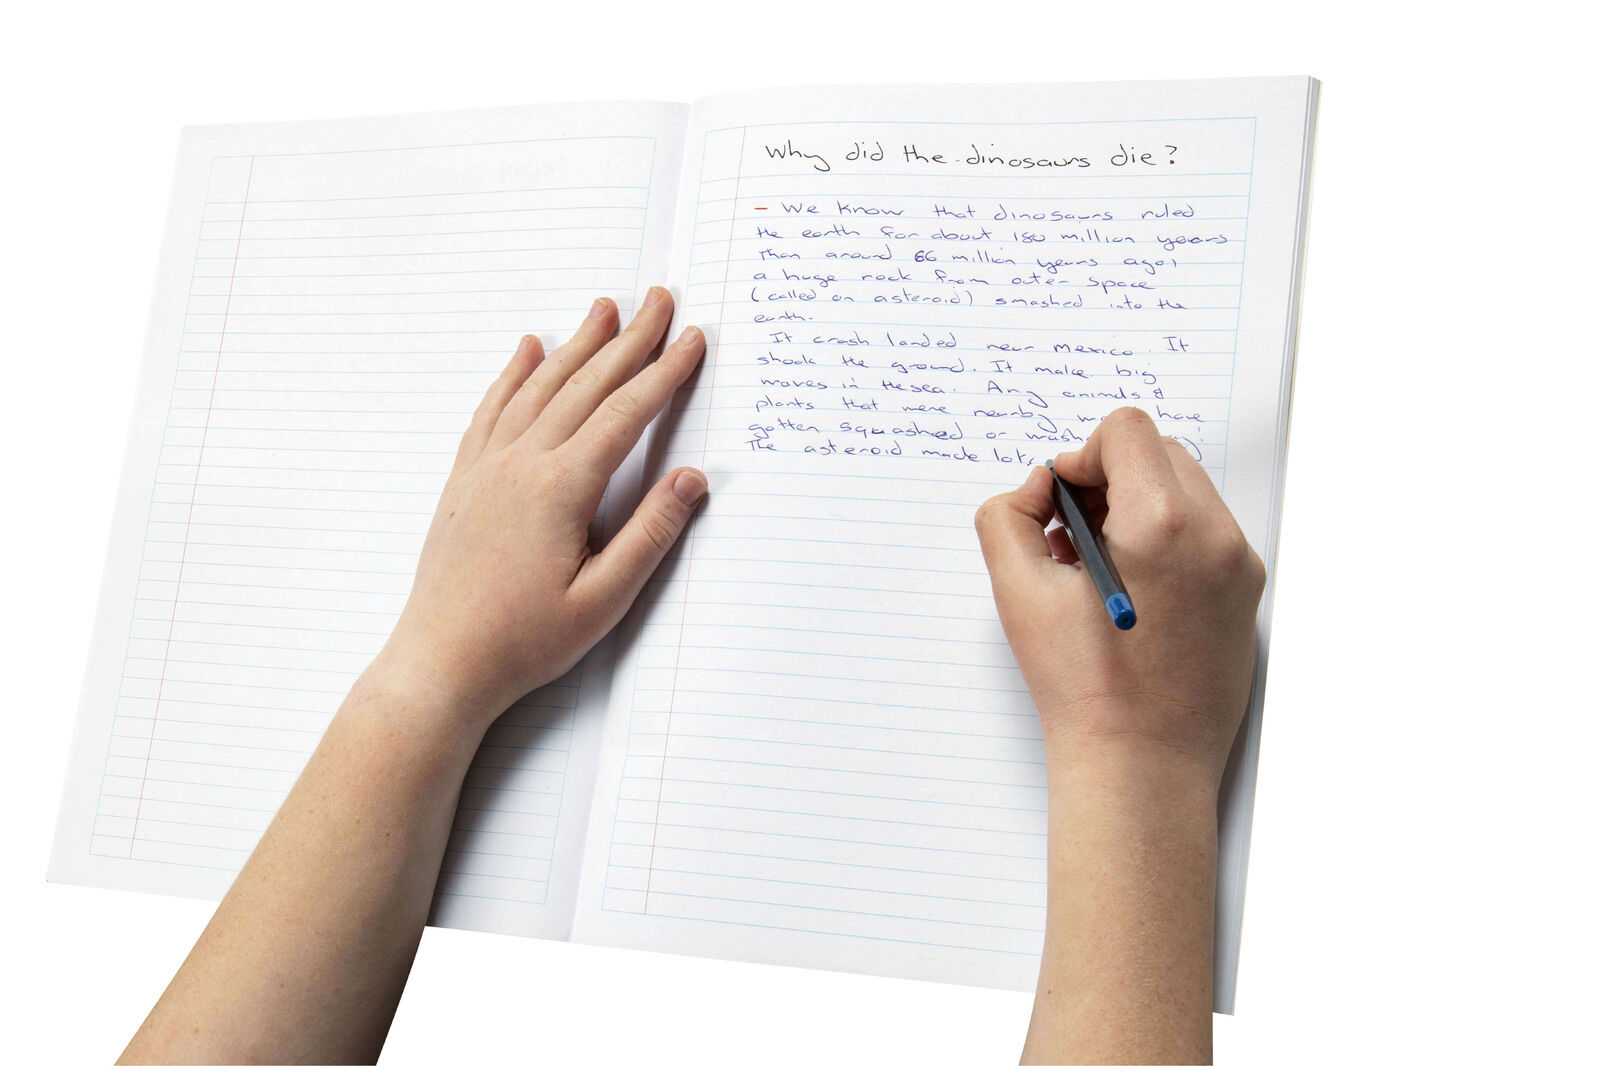 Why did the dinosaurs die?
- We know that dinosaurs ruled
the earth for about 180 million years
Then around 66 million years ago,
a huge rock from outer space
(called an asteroid) smashed into the
earth.
It crash landed near mexico. It
shook the ground. It make big
waves in the sea. Any animals &
plants that were nearby have
gotten squashed or
The asteroid made lots